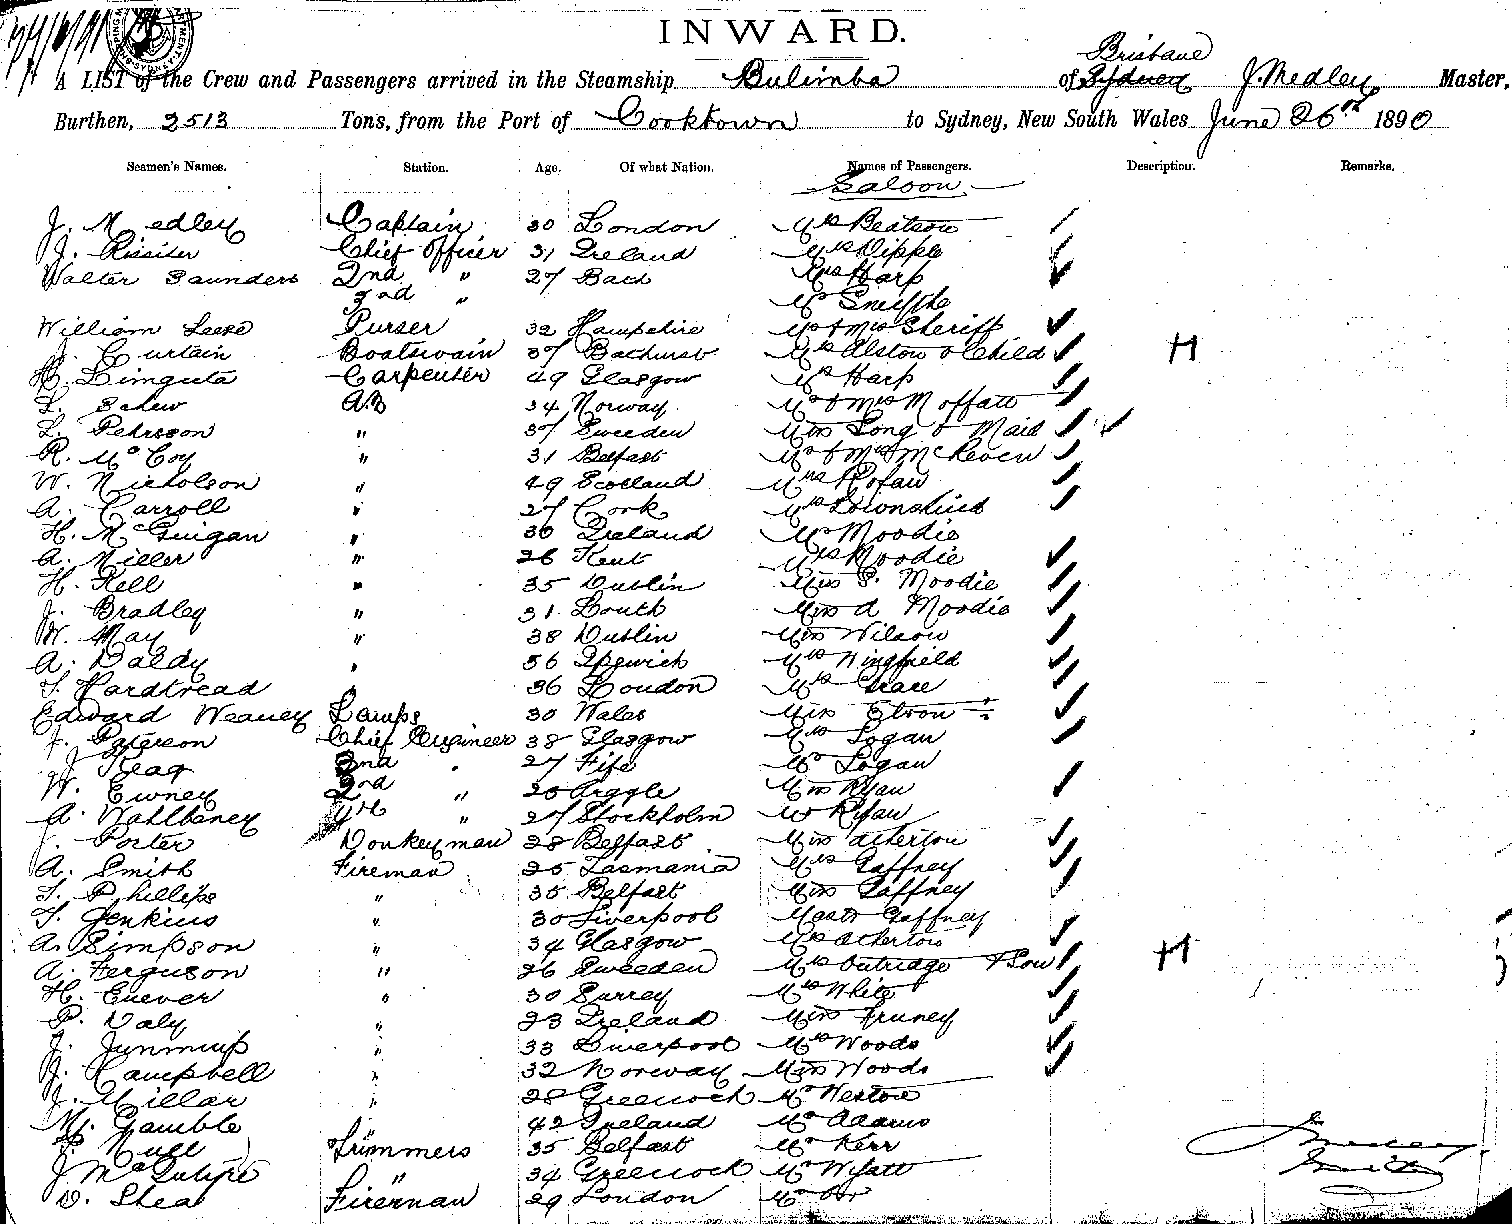 INWARD.
Brisbane
A LIST of the Crew and Passengers arrived in the Steamship Bulimba of Sydney J. Medley Master,
Burthen, 2513 Tons, from the Port of Cooktown to Sydney, New South Wales June 26th 1890
Seamen's Names. Station. Age. Of what Nation. Names of Passengers. Description. Remarks.
Saloon
J. Medley Captain 30 London Mrs Beatson
J. Rissiter Chief Officer 31 Ireland Mrs Dipple
Walter Saunders 2nd " 27 Bath Mrs Harp
3rd " Mr
William Leese Purser 32 Hampshire Mr & Mrs Sheriff
J. Curtain Boatswain 37 Bathurst Mrs Alston & Child H
Carpenter 49 Glasgow Mr Harp
L. Schew A.B 34 Norway Mr & Mrs Moffatt
L. Pehrsson " 37 Sweeden Miss Long & Maid
R. McCoy " 31 Belfast Mr & Mrs
W. Nicholson " 49 Scotland Mrs
A. Carroll " 27 Cork Mrs
H. McGuigan " 30 Ireland Mr Moodie
A. Miller " 26 Kent Mrs Moodie
H. Kell " 35 Dublin Miss P. Moodie
J. Bradley " 31 Louth Miss A Moodie
W. May " 38 Dublin Miss Wilson
A. Daldy " 56 Ipswich Mrs Wingfield
T. Hardtread " 36 London Mrs Grace
Edward Weaney Lamps 30 Wales Miss Elvon
J. Paterson Chief Engineer 38 Glasgow Mrs Logan
J. Reag 2nd " 27 Fife Mr Logan
W. Ewney 3rd " 26 Argyle Miss Ryan
A. 4th " 27 Stockholm Mr Ryan
J. Porter Donkeyman 28 Belfast Miss Atherton
A. Smith Fireman 25 Tasmania Mrs Gaffney
T. Phillips " 35 Belfast Miss Gaffney
T. Jenkins " 30 Liverpool Mastr Gaffney
A. Simpson " 34 Glasgow Mrs Atherton
A. Ferguson " 26 Sweeden Mrs Outridge & Son H
H. Enever " 30 Surrey Mrs White
P. Daly " 23 Ireland Miss Fruney
J. " 33 Liverpool Mrs Woods
J. Campbell " 32 Norway Miss Woods
J. Millar " 28 Greenock Mr Weston
M. Gamble 42 Ireland Mr Adams
Trimmers 35 Belfast Mr Kerr
J McIntyre " 34 Greenock Mr Wyatt
D. Shea Fireman 29 London Mr Orr